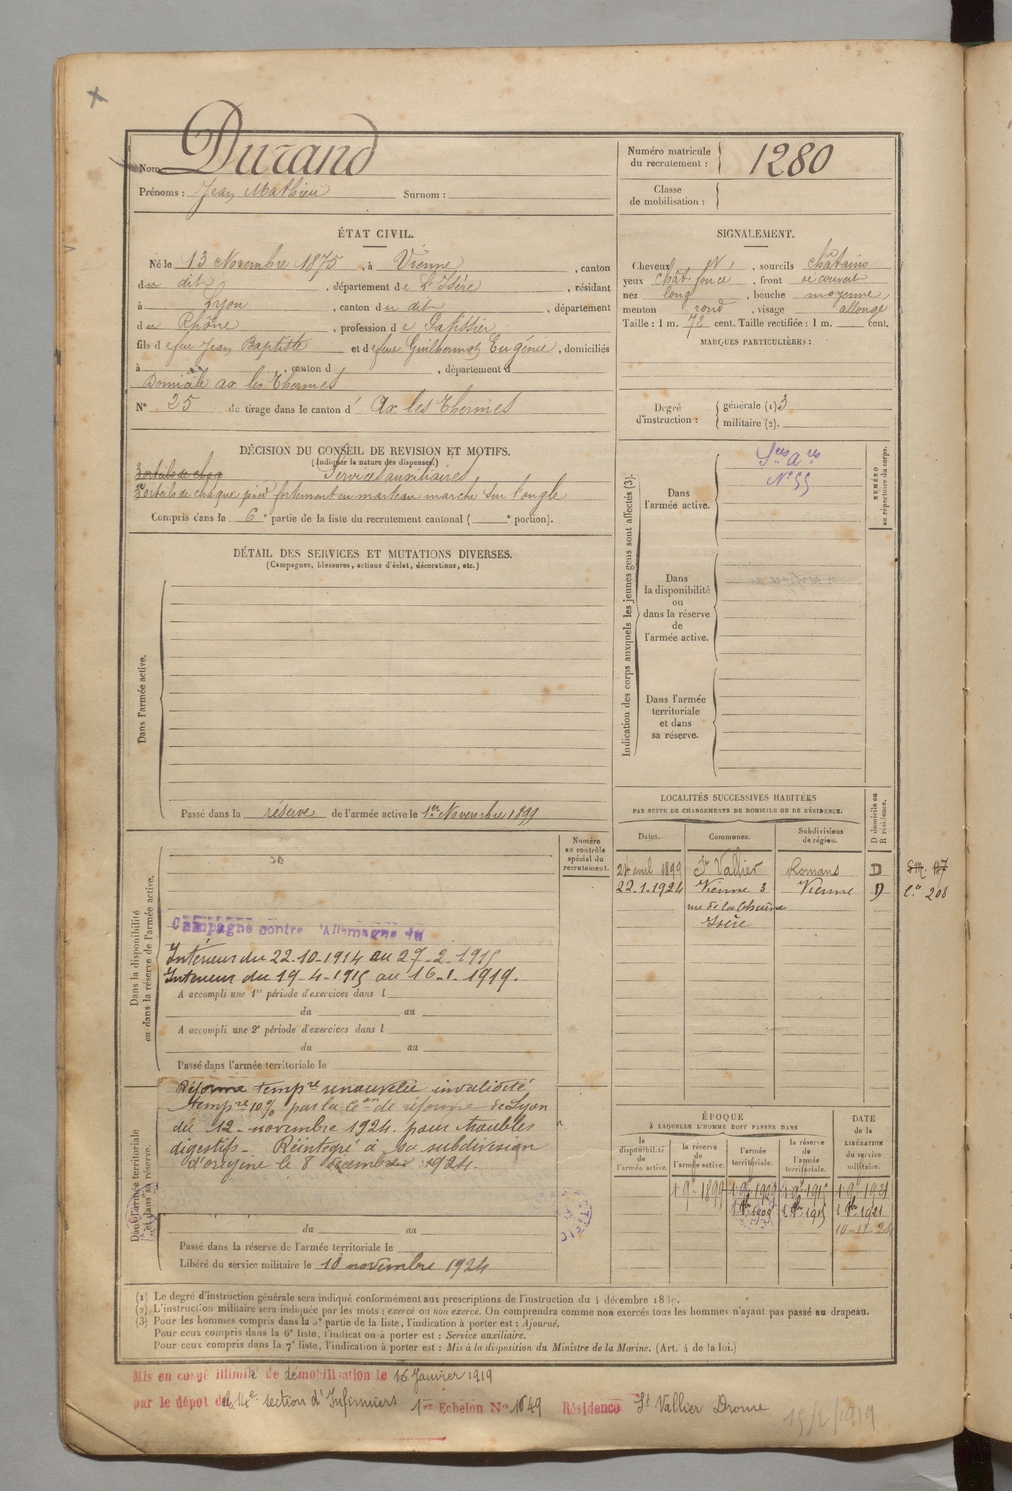 Nom Durand
Prénoms : Jean Mathieu Surnom :
Numéro matricule
du recrutement : 1280
Classe
de mobilisation :
ÉTAT CIVIL.
Né le 13 Novembre 1875, à Vienne, canton
du dit, département de l'Isère, résidant
à Lyon, canton du dit, département
du Rhône, profession de Patissier
fils de feu Jean Baptiste et de feue Eugénie, domiciliés
à , canton d , département d
Domicile ax les Thermes
N° 25 de tirage dans le canton d' Ax les Thermes
SIGNALEMENT.
Cheveux , sourcils châtains
yeux chat. foncé, front découvert
nez long, bouche moyenne,
menton rond, visage allongé
Taille : 1 m. 72 cent. Taille rectifiée : 1 m. cent.
MARQUES PARTICULIÈRES :
Degré
d'instruction :
générale (1) 3
militaire (2).
DÉCISION DU CONSEIL DE REVISION ET MOTIFS.
(Indiquer la nature des dispenses.)
Services auxiliaires
de chaque pied fortement en marteau marche sur l'ongle
Compris dans la 6e partie de la liste du recrutement cantonal ( e portion).
DÉTAIL DES SERVICES ET MUTATIONS DIVERSES.
(Campagnes, blessures, actions d'éclat, décorations, etc.)
Dans l'armée active.
Passé dans la réserve de l'armée active le 1er Novembre 1899
Indication des corps auxquels les jeunes gens sont affectés (3).
Dans
l'armée active.
Sces Ares
N° 55
NUMÉRO
au répertoire du corps.
Dans
la disponibilité
ou
dans la réserve
de
l'armée active.
Dans l'armée
territoriale
et dans
sa réserve.
LOCALITÉS SUCCESSIVES HABITÉES
PAR SUITE DE CHANGEMENTS DE DOMICILE OU DE RÉSIDENCE.
Dates. Communes. Subdivisions
de région.
D domicile ou
R résidence.
avril 1899 St Vallier Romans D
22.1.1924 Vienne 3 Vienne D 208
rue de la Chaîne
Isère
Numéro
au contrôle
spécial du
recrutement.
Dans la disponibilité
ou dans la réserve de l'armée active.
Campagne contre l'Allemagne du
Intérieur du 22.10-1914 au 27-2-1915
Intérieur du 19-4-1915 au 16-1-1919.
A accompli une 1re période d'exercices dans l
du au
A accompli une 2e période d'exercices dans l
du au
Passé dans l'armée territoriale le
Dans l'armée territoriale
et dans sa réserve.
Réforme tempre renouvelée invalidité
tempre 10% par la Con de réforme de Lyon
du 12 novembre 1924 pour troubles
digestifs - Réintégré à sa subdivision
d'origine le 8 décembre 1924.
du au
Passé dans la réserve de l'armée territoriale le
Libéré du service militaire le 10 novembre 1924
ÉPOQUE
À LAQUELLE L'HOMME DOIT PASSER DANS
la
disponibilité
de
l'armée active.
la réserve
de
l'armée active.
l'armée
territoriale.
la réserve
de
l'armée
territoriale.
DATE
de la
LIBÉRATION
du service
militaire.
1 9e 1899
10-11-24
(1) Le degré d'instruction générale sera indiqué conformément aux prescriptions de l'instruction du 4 décembre 1889.
(2) L'instruction militaire sera indiquée par les mots : exercé ou non exercé. On comprendra comme non exercés tous les hommes n'ayant pas passé au drapeau.
(3) Pour les hommes compris dans la 5e partie de la liste, l'indication à porter est : Ajourné.
Pour ceux compris dans la 6e liste, l'indication à porter est : Service auxiliaire.
Pour ceux compris dans la 7e liste, l'indication à porter est : Mis à la disposition du Ministre de la Marine. (Art. 4 de la loi.)
Mis en congé illimité de démobilisation le 16 Janvier 1919
par le dépôt de la 14e section d'Infirmiers 1er Echelon No 1649 Résidence St Vallier Drome
15/2/1919